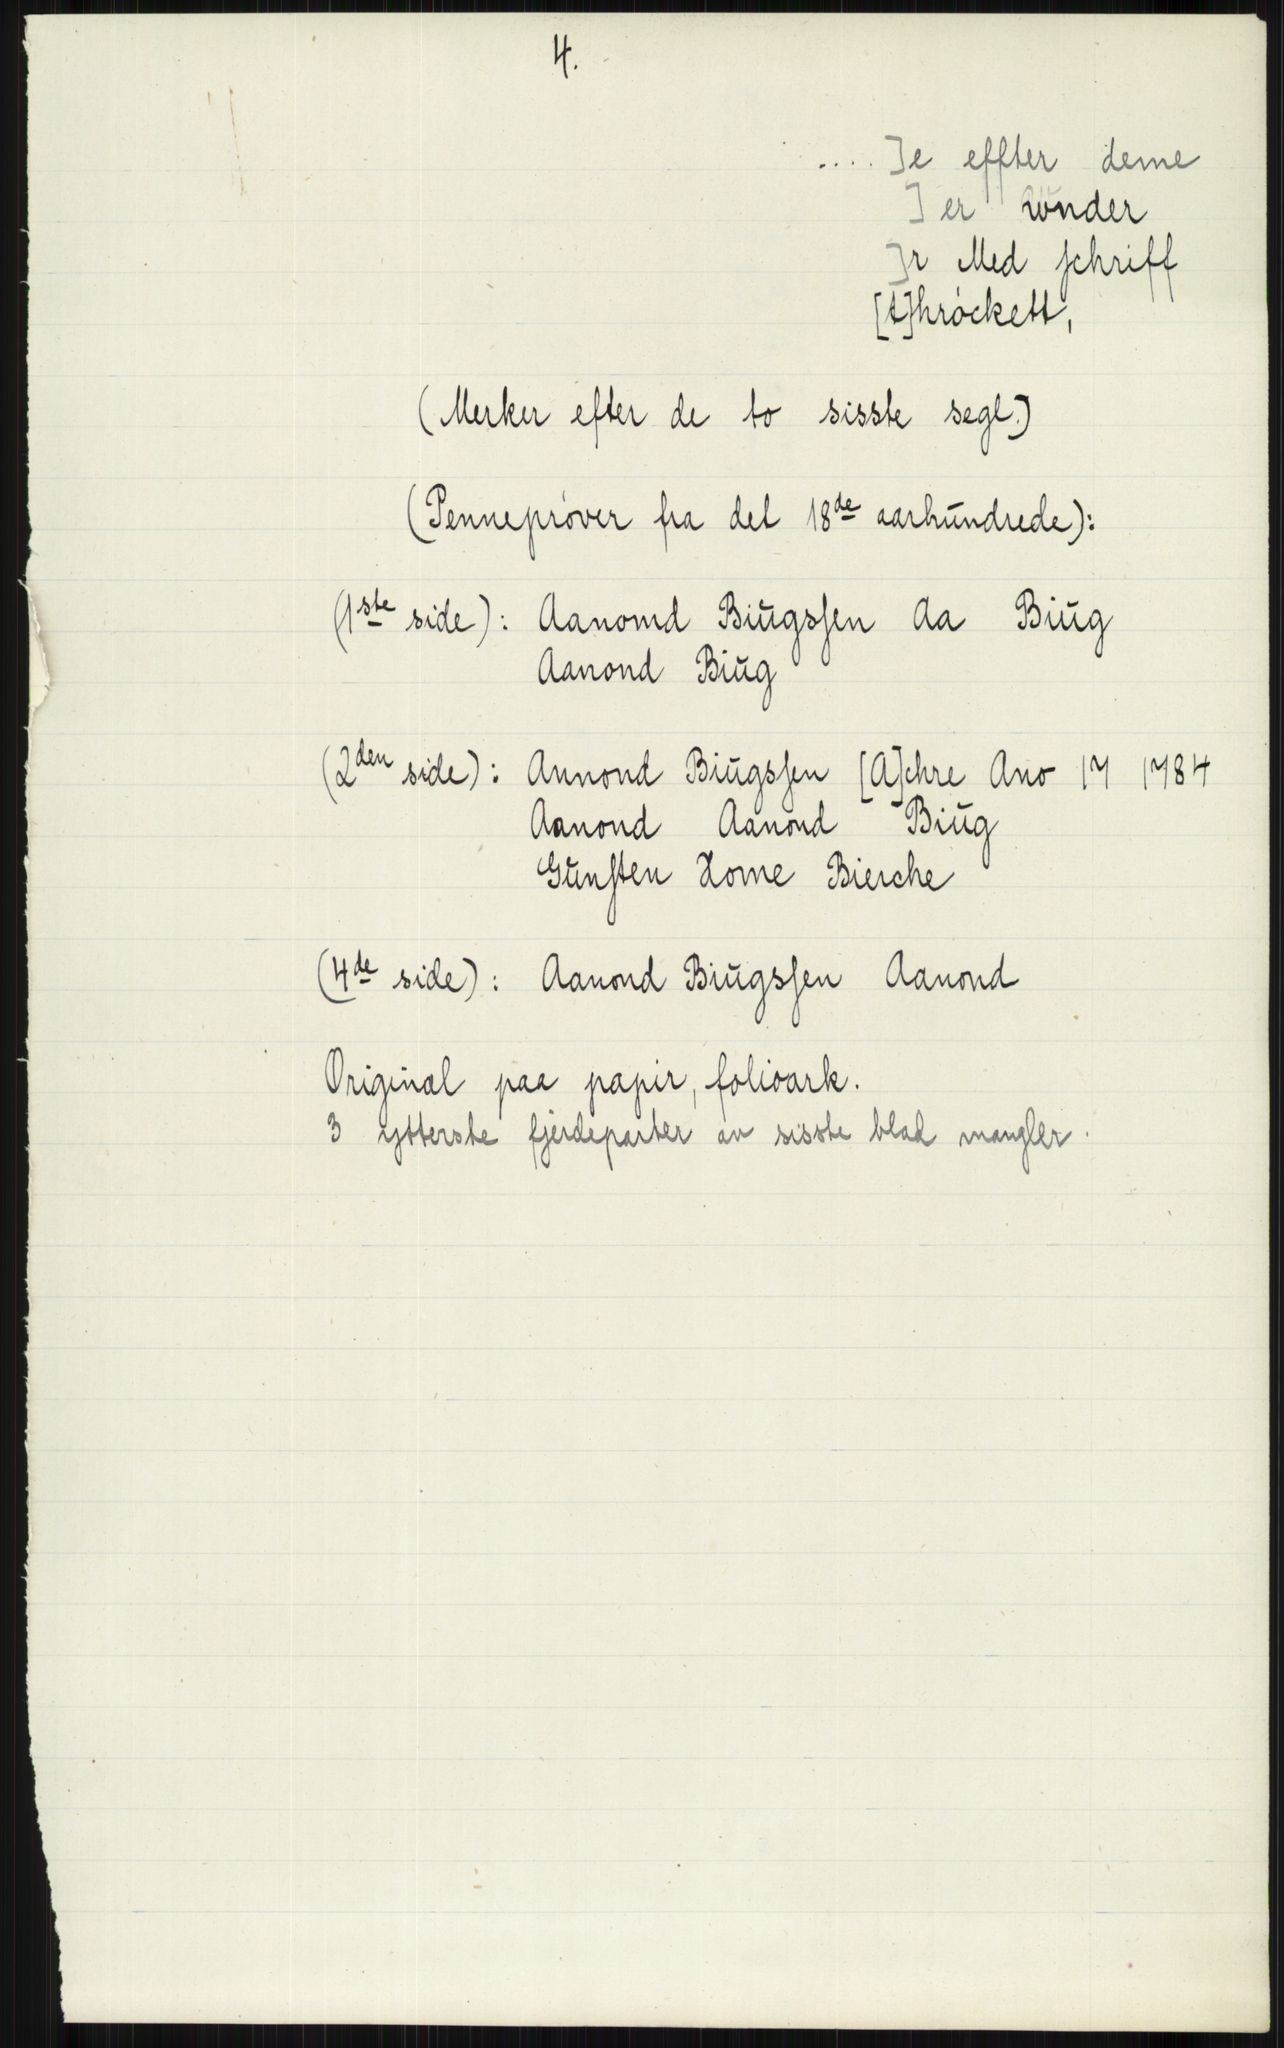 4.
.... ]e effter deme
] er wnder
]r Med schriff
[t]hrøckett,
(Merker efter de to sisste segl.)
(Penneprøver fra det 18de aarhundrede):
(1ste side): Aanomd Biugssen Aa Biug
Aanond Biug
(2den side): Annond Biugssen [A]chre Ano 17 1784
Aanond Aanond Biug
Gunsten Home Bierche
(4de side): Aanond Biugssen Aanond
Original paa papir, folioark.
3 ytterste fjerdeparter av sisste blad mangler.